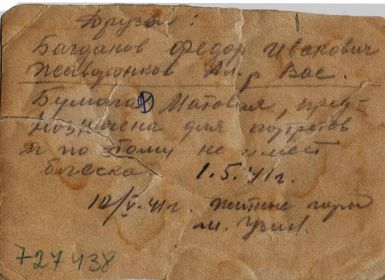 Друзья:
Багданов Федор Иванович
Ал-р Вас.
Бумага Матовая, пред-
назначена для портретов
и по этому не имеет
блеска 1.5.41г.
10/V.41г. Житные горы
м. Узин.
727438